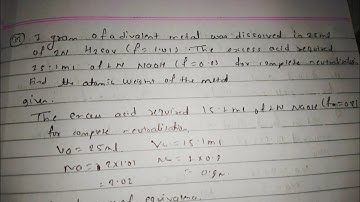 1 gram of a divalent metal was dissolved in 25ml
of 2N H2SO4 (f=1.01). The excess acid required
15.1ml of 1N NaOH (f=0.8) for complete neutralization
Find the atomic weight of the metal
given.
The excess acid required 15.1ml of 1N NaOH
for complete neutralisation
V0 = 25ml
= 15.1ml
= 2x1.01
= 1x0.8
= 2.02
of equivalent